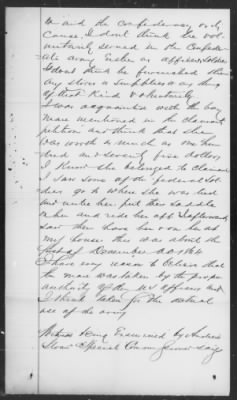 to and the confederacy only
cause, I dont think he vol-
untarily served in the Confede-
rate army either as officer, soldier
I dont think he furnished them
any stores or supplies or any thing
of that Kind voluntarily
I was acquainted with the bay
mare mentioned in the claimants
petition and think that she
was worth as much as one hun-
dred and seventy five dollars,
I Know she belonged to claimant
I saw some of the federal sol-
diers go to where she was tied
and untie her put their saddle
on her and ride her off & afterwards
saw them have her on he at
my house this was about the
first of December AD 1864
I have every reason to believe that
the mare was taken by the proper
authority of the US officers and
I think taken for the actual
use of the army
Witness Being Examined by Andrew
Sloan Special Commissioner says